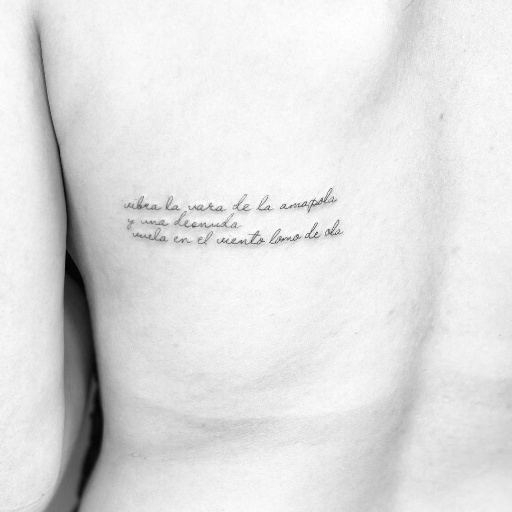 vibra la vara de la amapola
y una desnuda
vuela en el viento lomo de ola